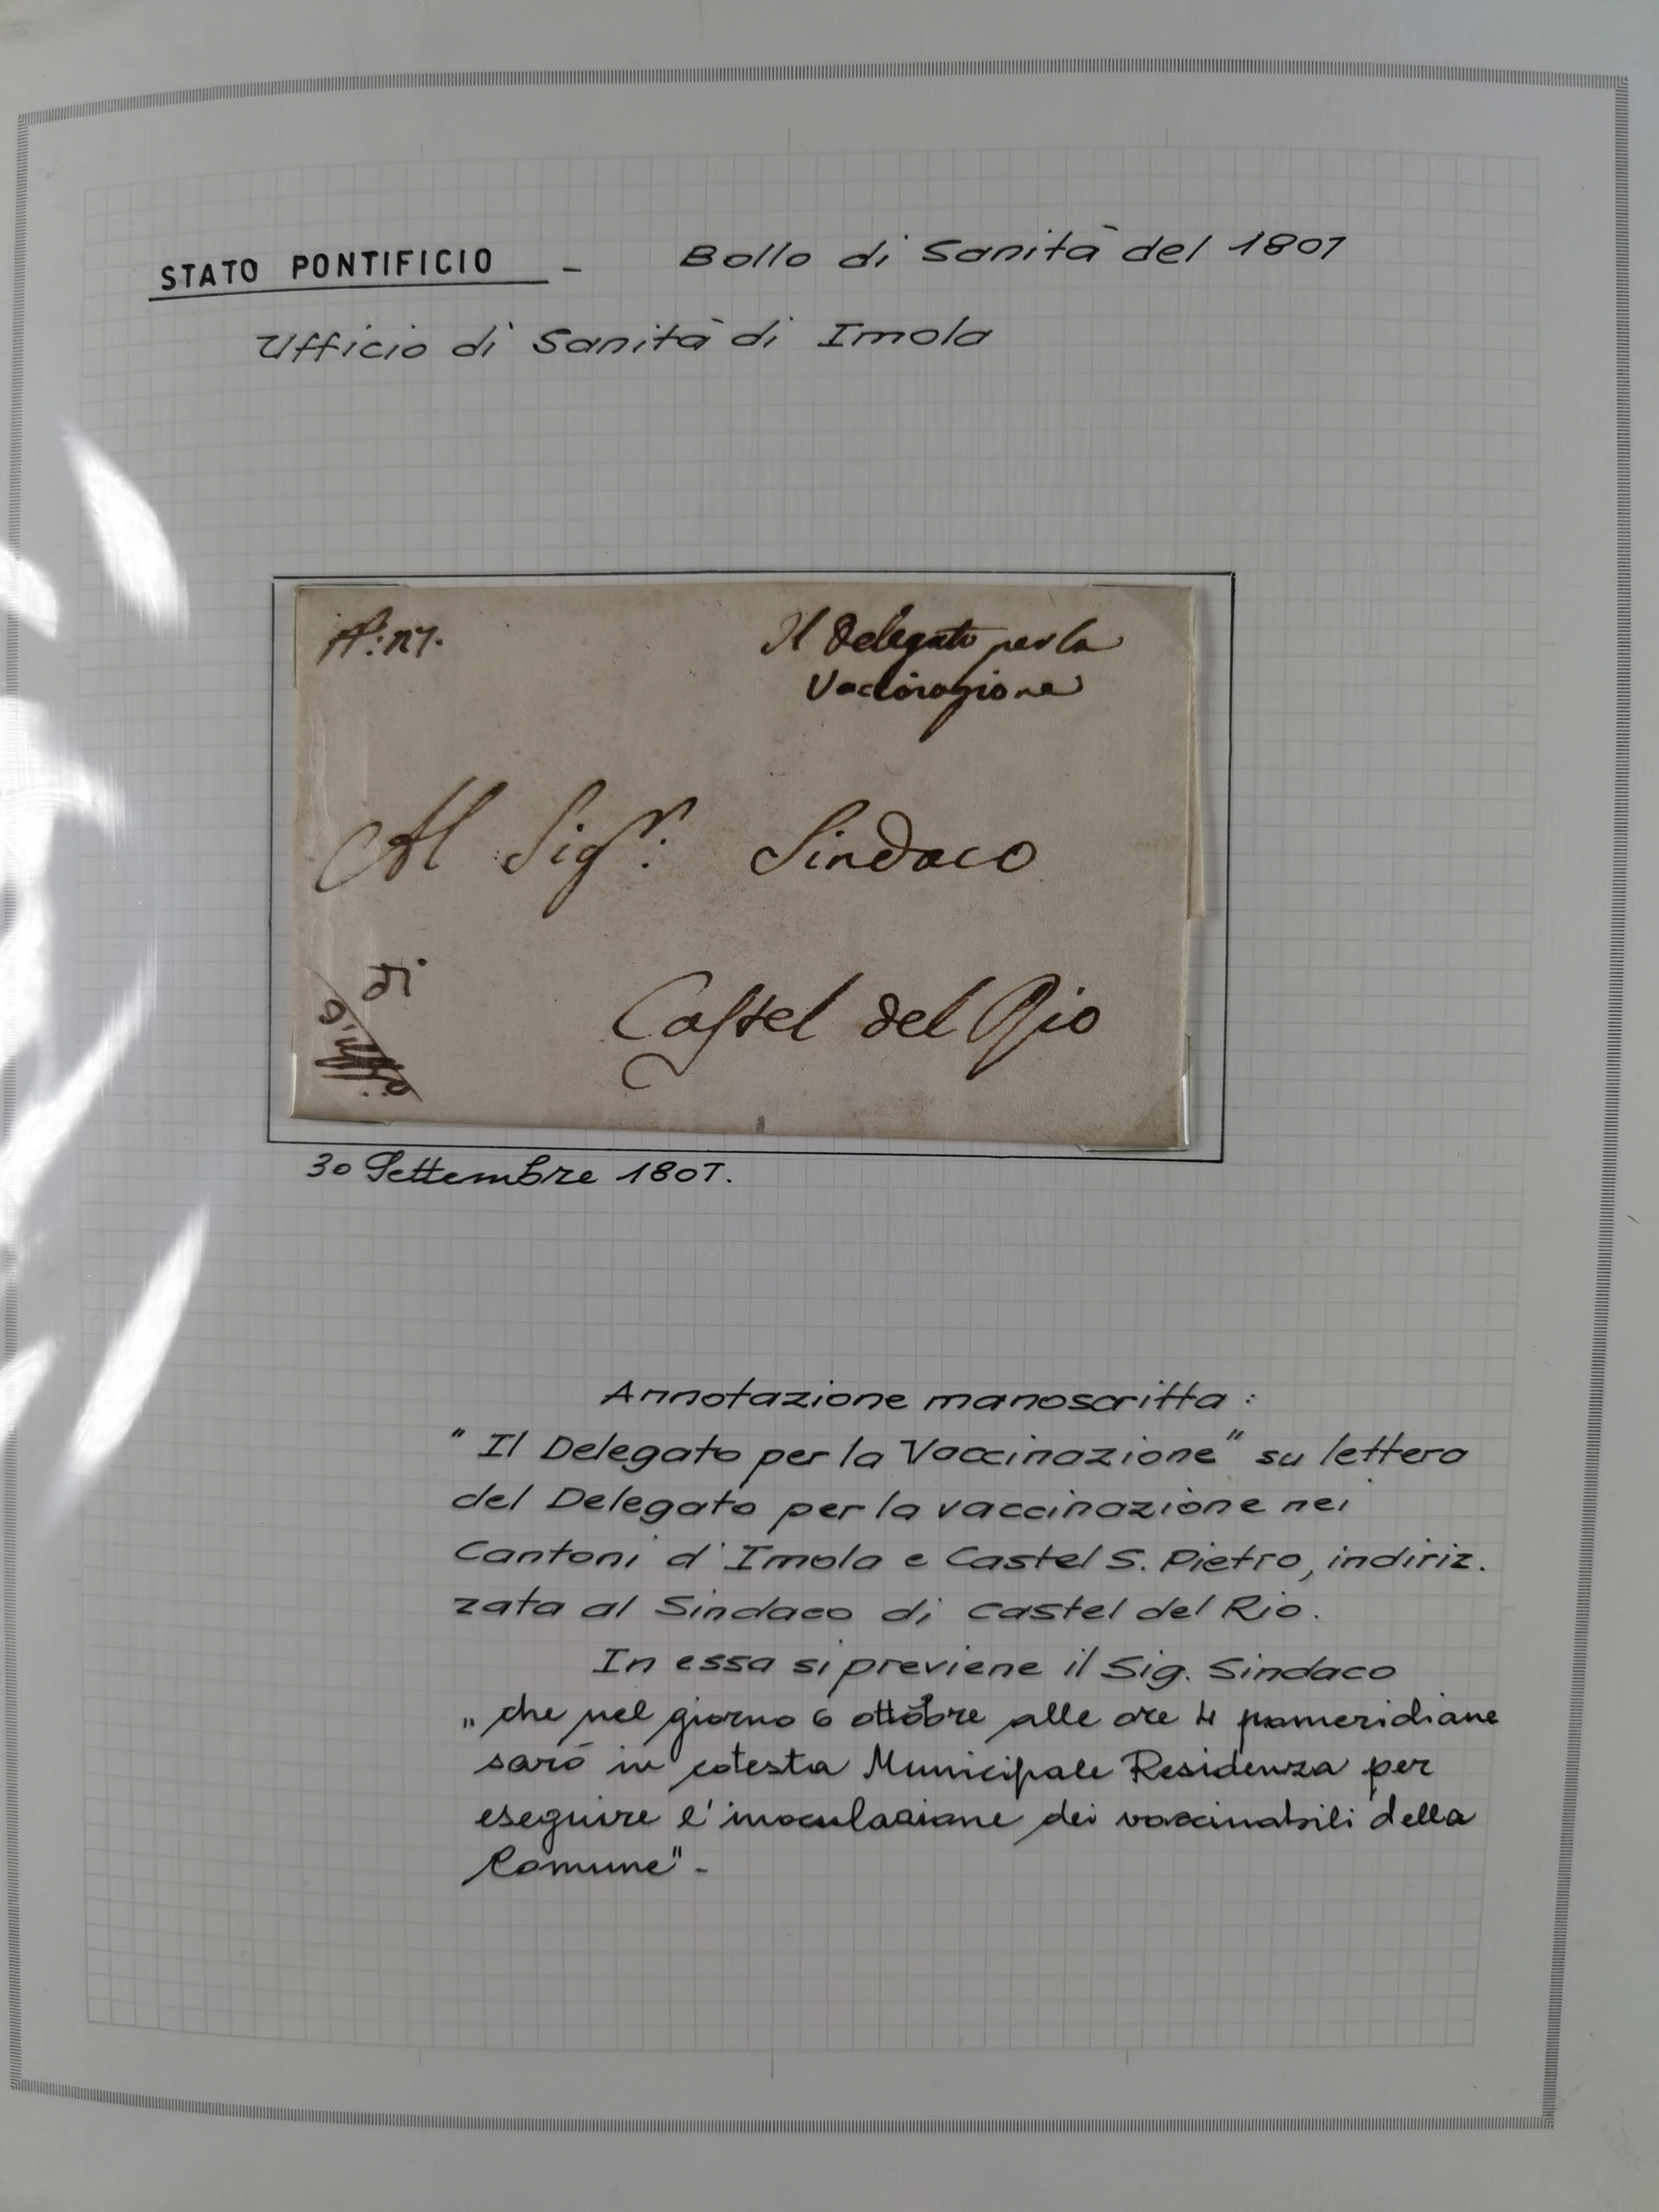 STATO PONTIFICIO - Bollo di Sanità del 1807
Ufficio di Sanità di Imola
Il Delegato per la
Vaccinazione
Al Sigr: Sindaco
di
Castel del Rio
30 Settembre 1807.
Annotazione manoscritta :
" Il Delegato per la Vaccinazione" su lettera
del Delegato per la vaccinazione nei
Cantoni d'Imola e Castel S. Pietro, indiriz.
zata al Sindaco di Castel del Rio.
In essa si previene il Sig. Sindaco
„ che nel giorno 6 ottobre alle ore 4 pomeridiane
sarò in cotesta Municipale Residenza per
eseguire l'inoculazione dei vaccinabili della
Comune" -